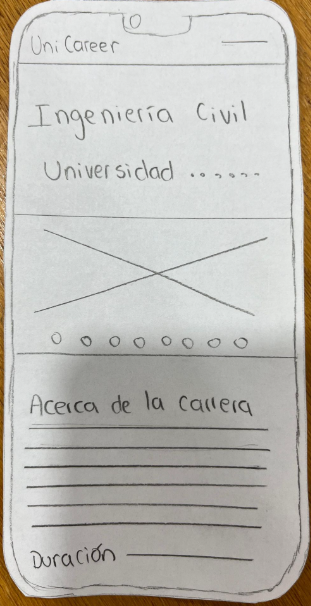 Uni Career
Ingeniería Civil
Universidad .......
Acerca de la carrera
Duración